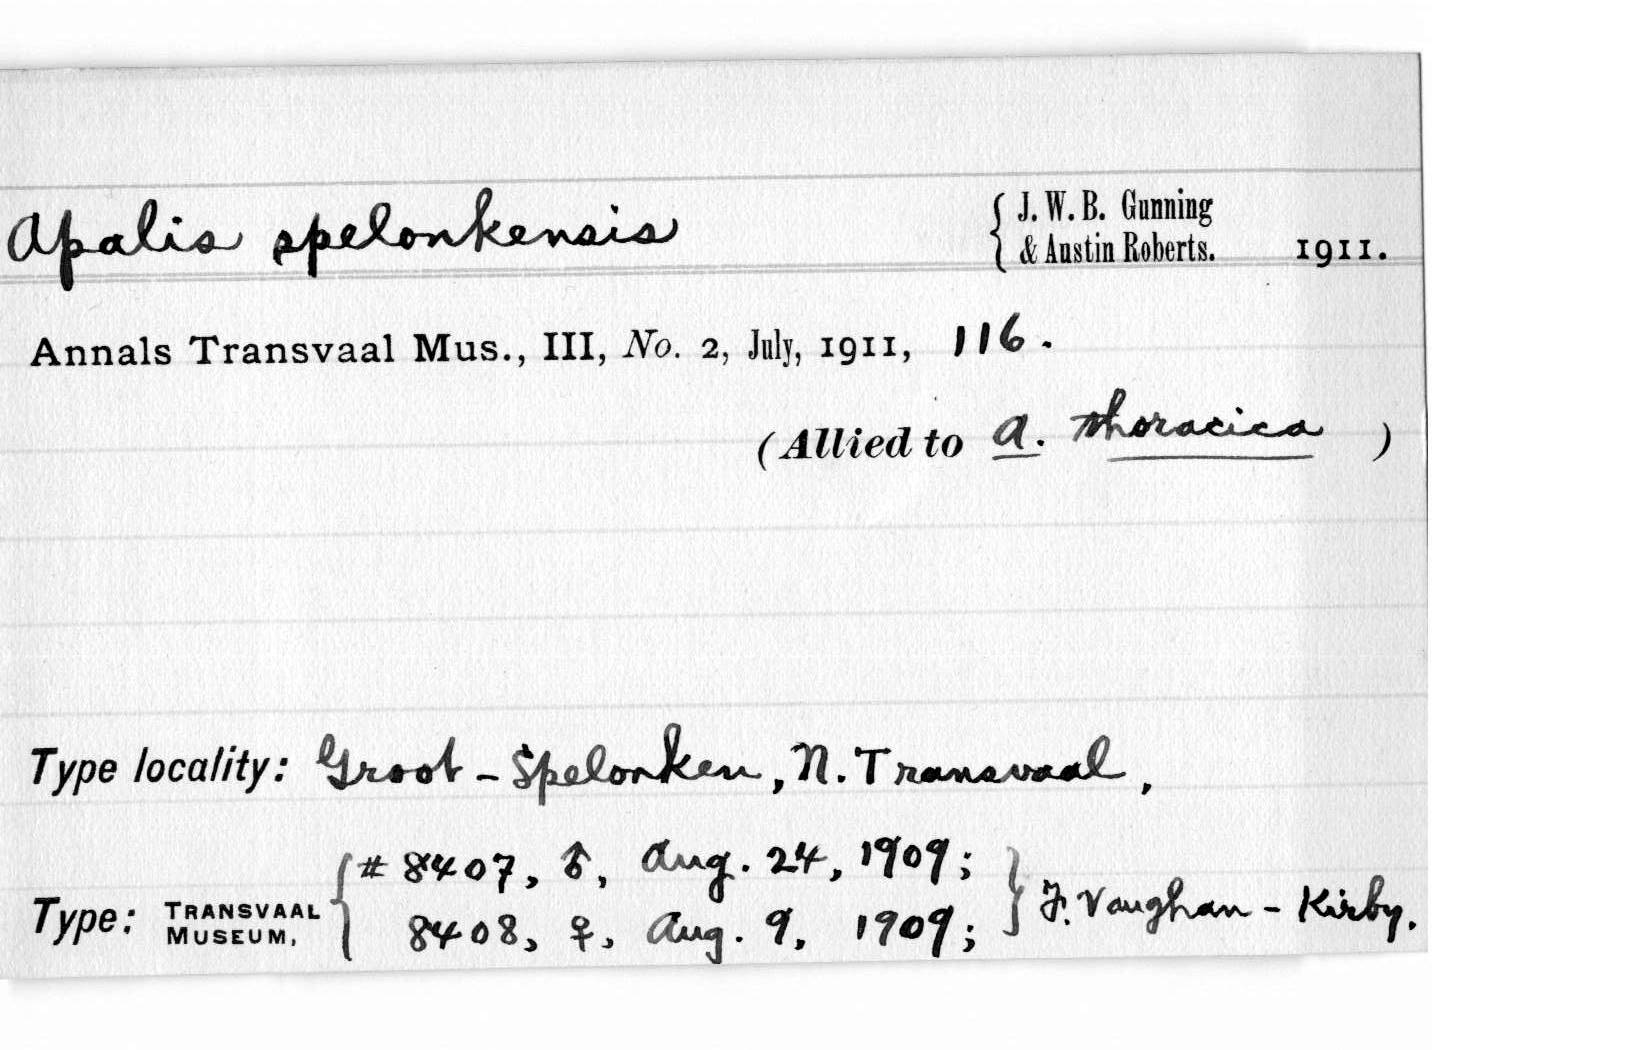 Apalis spelonkensis { J. W. B. Gunning
& Austin Roberts. 1911.
Annals Transvaal Mus., III, No. 2, July, 1911, 116.
(Allied to A. thoracica )
Type locality: Groot-Spelonken, N. Transvaal,
Type: TRANSVAAL MUSEUM, { # 8407, ♂, Aug. 24, 1909;
8408, ♀, Aug. 9, 1909; } F. Vaughan-Kirby.